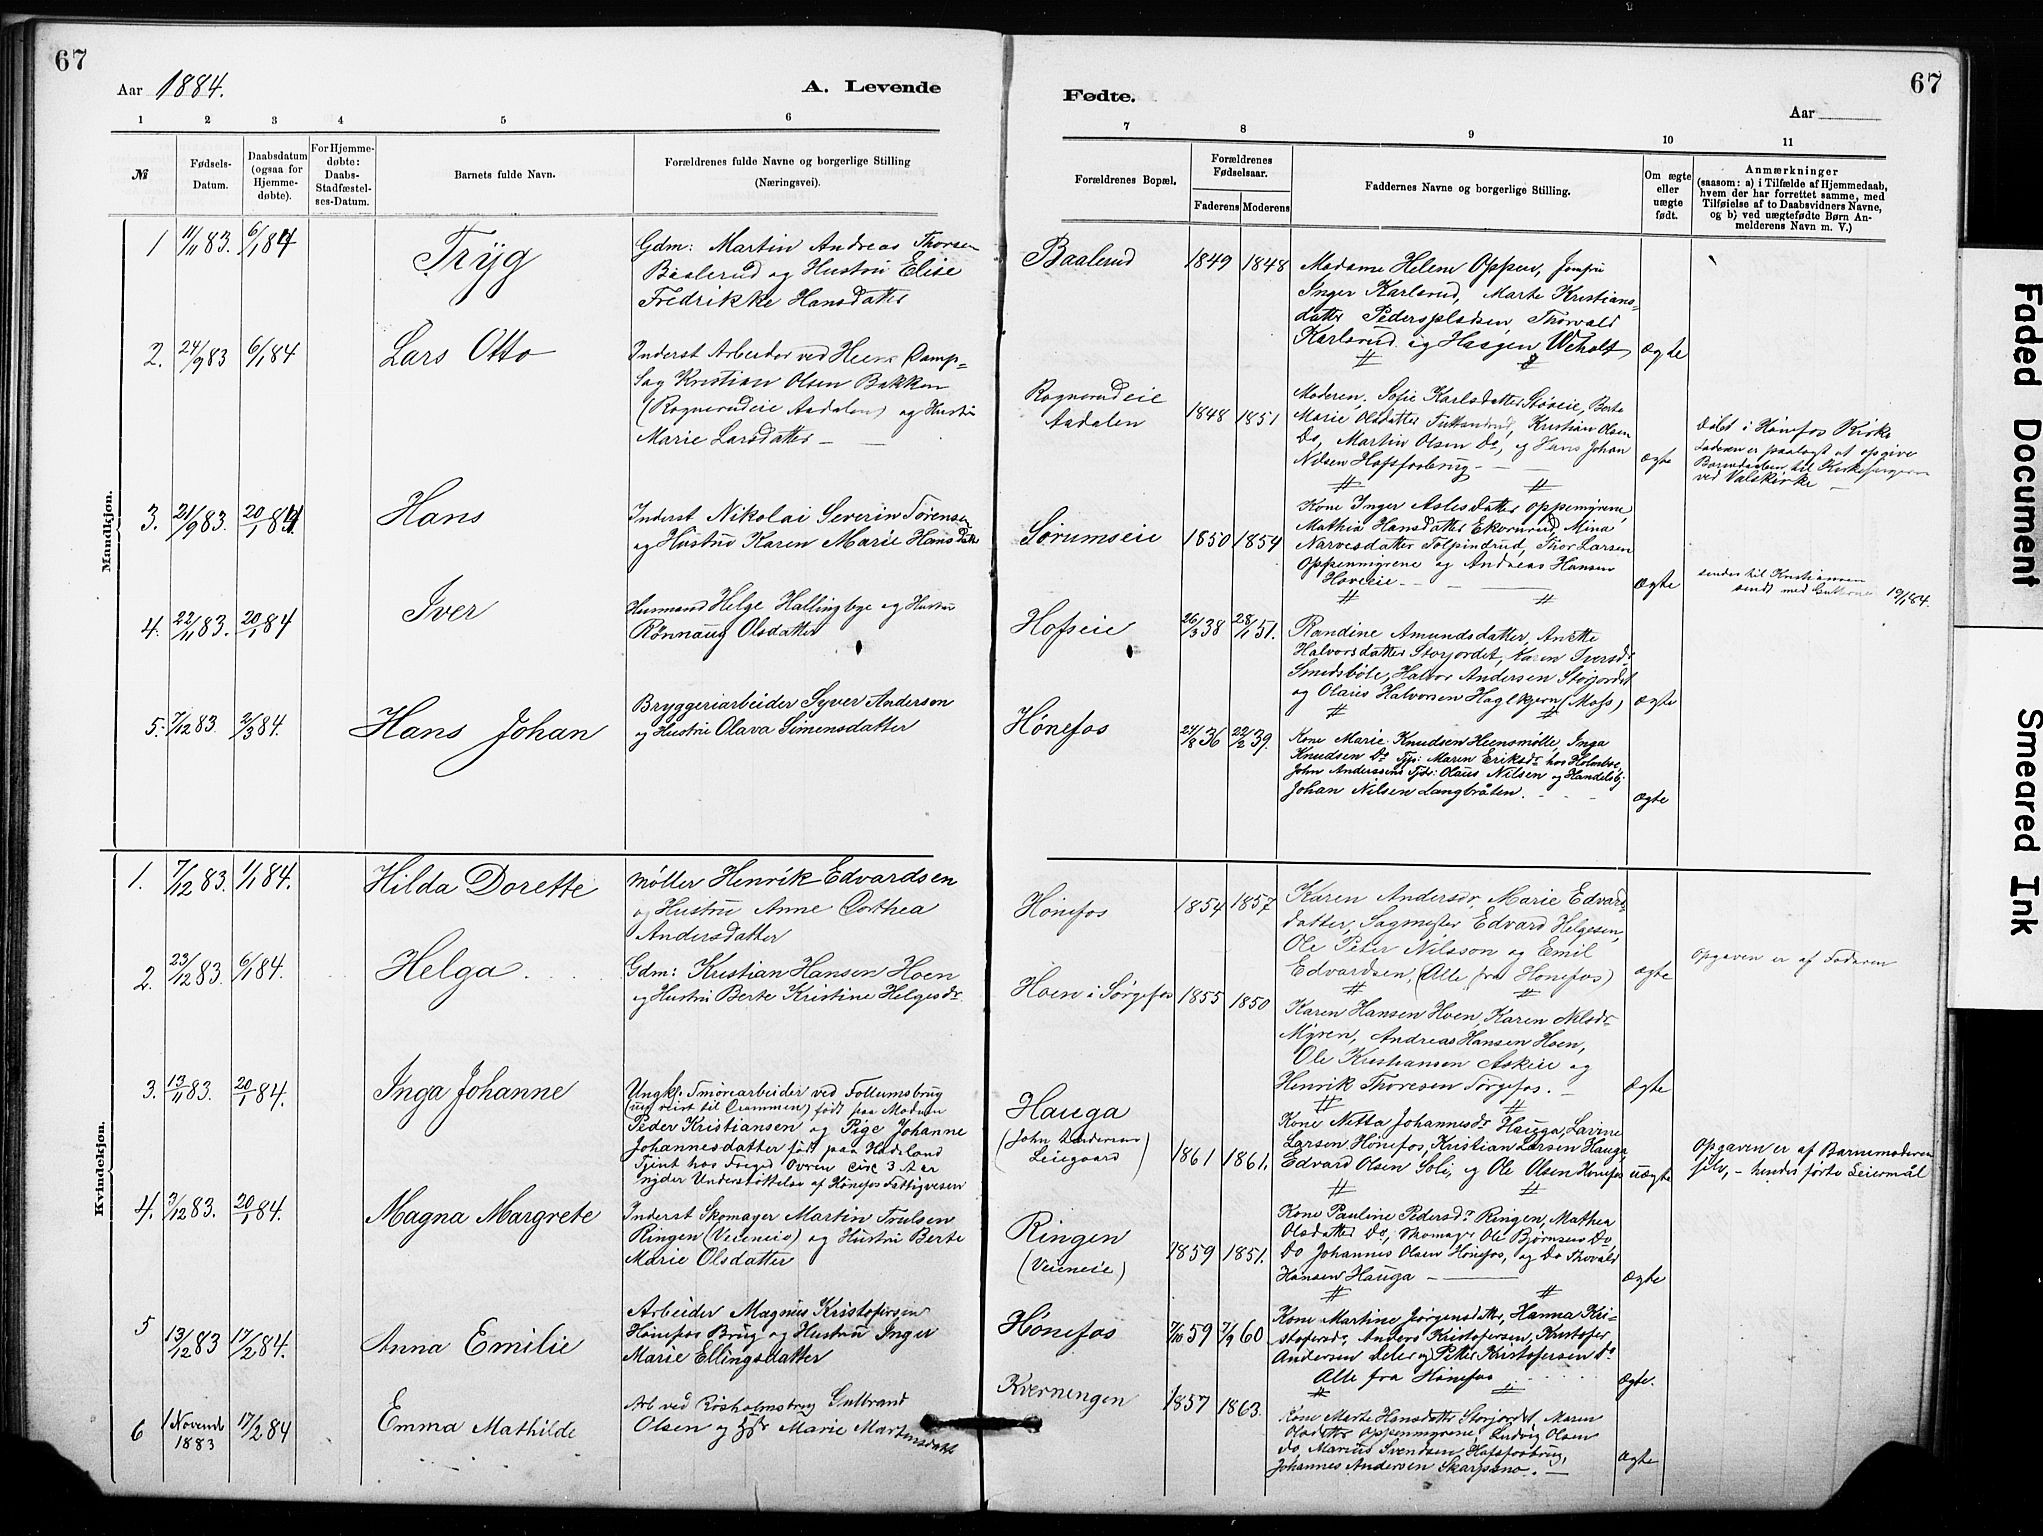 67
67
Aar 1884.
A. Levende
Fødte.
Aar
1 2 3 4 5 6 7 8 9 10 11
№
Fødsels-
Datum.
Daabsdatum
(ogsaa for
Hjemme-
døbte).
For Hjemme-
døbte:
Daabs-
Stadfæstel-
ses-Datum.
Barnets fulde Navn.
Forældrenes fulde Navne og borgerlige Stilling
(Næringsvei).
Forældrenes Bopæl.
Forældrenes
Fødselsaar.
Faderens Moderens
Faddernes Navne og borgerlige Stilling.
Om ægte
eller
uægte
født.
Anmærkninger
(saasom: a) i Tilfælde af Hjemmedaab,
hvem der har forrettet samme, med
Tilføielse af to Daabsvidners Navne,
og b) ved uægtefødte Børn An-
melderens Navn m. V.)
Mandkjøn.
1 11/11 83. 6/1 84
Tryg
Gdm: Martin Andreas Thorsen
Baalerud og Hustru Elise
Fredrikke Hansdatter
Baalerud
1849 1848
Madame Helene Oppen, Jomfru
Inger Karlsrud, Marte Kristians-
datter Pederspladsen, Thorvald
Karlsrud og Hasjen Weholt
Ægte
2. 24/9 83 6/1 84
Lars Otto
Inderst Arbeider ved Heens Damp-
sag Kristian Olsen Bakken
(Rognerudeie Aadalen) og Hustru
Marie Larsdatter
Rognerudeie
Aadalen
1848 1851
Moderen, Sofie Karlsdatter Støveie, Berte
Marie Olsdatter, Kristian Olsen
Do, Martin Olsen Do, og Hans Johan
Nilsen Hofsfosbrug
ægte
Døbt i Hønefos Kirke
Faderen er paalagt at opgive
Barnedaaben til Kirkesangeren
ved Valskirke
3. 21/9 83. 20/1 84
Hans
Inderst Nikolai Severin Sørensen
og Hustru Karen Marie Hansdatter
Sørumseie
1850 1854
Kone Inger Aslesdatter Oppenmyrene,
Mathia Hansdatter Ekornrud, Mina
Narvesdatter Tolpindrud, Thor Larsen
Oppenmyrene og Andreas Hansen
Hoveie
Ægte
sendes til Kristiansen
sendt med Gutterne 19/1 84.
4. 22/11 83. 20/1 84
Iver
Husmand Helge Hallingbye og Hustru
Rønnaug Olsdatter
Hofseie
26/3 38 28/11 51.
Randine Amundsdatter, Anette
Halvorsdatter Storjordet, Karen Iversdr
Smedsbøle, Halvor Andersen Storjordet
og Olaus Halvorsen Haglkjern (Moss)
Ægte
5. 7/12 83. 2/3 84.
Hans Johan
Bryggeriarbeider Syver Andersen
og Hustru Olava Simensdatter
Hønefos
24/8 36 22/2 39.
Kone Marie Knudsen Heensmølle, Inga
Knudsen Do Tjp: Maren Eriksdr hos Holmboe,
John Anderssens Tjdr: Olaus Nilsen og Handelsbj
Johan Nilsen Langbråten.
Ægte
Kvindekjøn.
1. 7/12 83. 1/1 84.
Hilda Dorette
Møller Henrik Edvardsen
og Hustru Anne Dorthea
Andersdatter
Hønefos
1854 1857
Karen Andersdr, Marie Edvards-
datter, Sagmester Edvard Helgesen,
Ole Peter Nilsson og Emil
Edvardsen, (Alle fra Hønefos)
ægte
Opgaven er af Faderen
2. 23/12 83. 6/1 84.
Helga
Gdm: Kristian Hansen Hoen
og Hustru Berte Kristine Helgesdr
Hoen i Sørgefos
1855 1850
Karen Hansen Hoen, Karen Nilsdr
Myren, Andreas Hansen Hoen,
Ole Kristiansen Askeie og
Henrik Thoresen Sørgefos.
Ægte
3. 13/11 83. 20/1 84.
Inga Johanne
Ungk: Smørearbeider ved Follumsbrug
(nu reist til Drammen) født paa Modum
Peder Kristiansen og Pige Johanne
Johannesdatter født paa Hadeland
Tjent hos Foged Owren circ 3 Aar
nyder Understøttelse af Hønefos Fattigvesen
Hauga
(John Andersens
Leiegaard)
1861 1861.
Kone Netta Johannesdr Hauga, Lavine
Larsen Hønefos, Kristian Larsen Hauga
Edvard Olsen Soli, og Ole Olsen Hønefos
uægte
Opgaven er af Barnemoderen
selv, - hendes første Leiermål
4. 3/12 83. 20/1 84.
Magna Margrete
Inderst Skomager Martin Trulsen
Ringen (Veieneie) og Hustru Berte
Marie Olsdatter
Ringen
(Veieneie)
1859 1851.
Kone Pauline Pedersdr Ringen, Mathea
Olsdatter Do, Skomager Ole Bjørnsen Do
Do Johannes Olsen Hønefos, og Do Thovald
Hansen Hauga
Ægte
5 13/12 83 17/2 84.
Anna Emilie
Arbeider Magnus Kristofersen
Hønefos Brug og Hustru Inger
Marie Ellingsdatter
Hønefos
7/10 59 7/9 60
Kone Martine Jørgensdtr, Hanna Kri-
stofersdr, Anders Kristofersen, Kristofer
Andersen Deler og Petter Kristofersen Do
Alle fra Hønefos
Ægte.
6 1 Novemb 1883 17/2 84
Emma Mathilde
Arb ved Røsholmsbrug Gulbrand
Olsen og Marie Martinsdatt
Kverningen
1857 1863.
Kone Marte Hansdatter Storjordet, Maren
Olsdatter Oppenmyrene, Ludvig Olsen
Do, Marius Svendsen, Hofsfosbrug,
Johannes Andersen Skarpsno.
Ægte
Faded Document
Smeared Ink